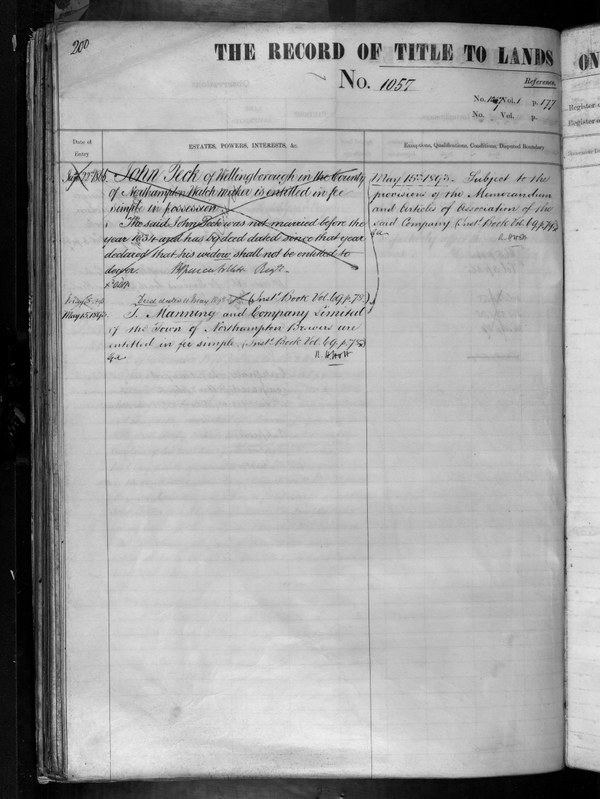 200
THE RECORD OF TITLE TO LANDS
No. 1057
Reference.
No. Vol. 1 p. 177
No. Vol. p.
Date of Entry
ESTATES, POWERS, INTERESTS, &c.
Exceptions, Qualifications, Conditions, Disputed Boundary
John Peck of Wellingborough in the County
of Northampton Watch Maker is entitled in fee
simple in possession
The said John Peck was not married before the
year 1834 and has by deed dated since that year
declared that his widow shall not be entitled to
dower. Regr.
(Inst. Book Vol. 69 p. 75)
May 15 189
T. Manning and Company Limited
of the Town of Northampton Brewers are
entitled in fee simple (Inst. Book Vol. 69 p. 75)
&c
May 15th 189 Subject to the
provisions of the Memorandum
and Articles of Association of the
said Company (Inst. Book Vol. 69 p. 75)
&c
ON
Register
Register